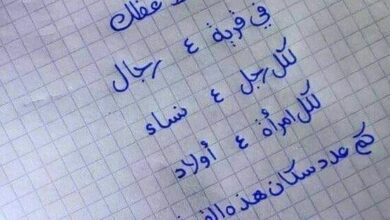 عقلك
في قرية ٤ رجال
لكل رجل ٤ نساء
لكل امرأة ٤ أولاد
كم عدد سكان هذه